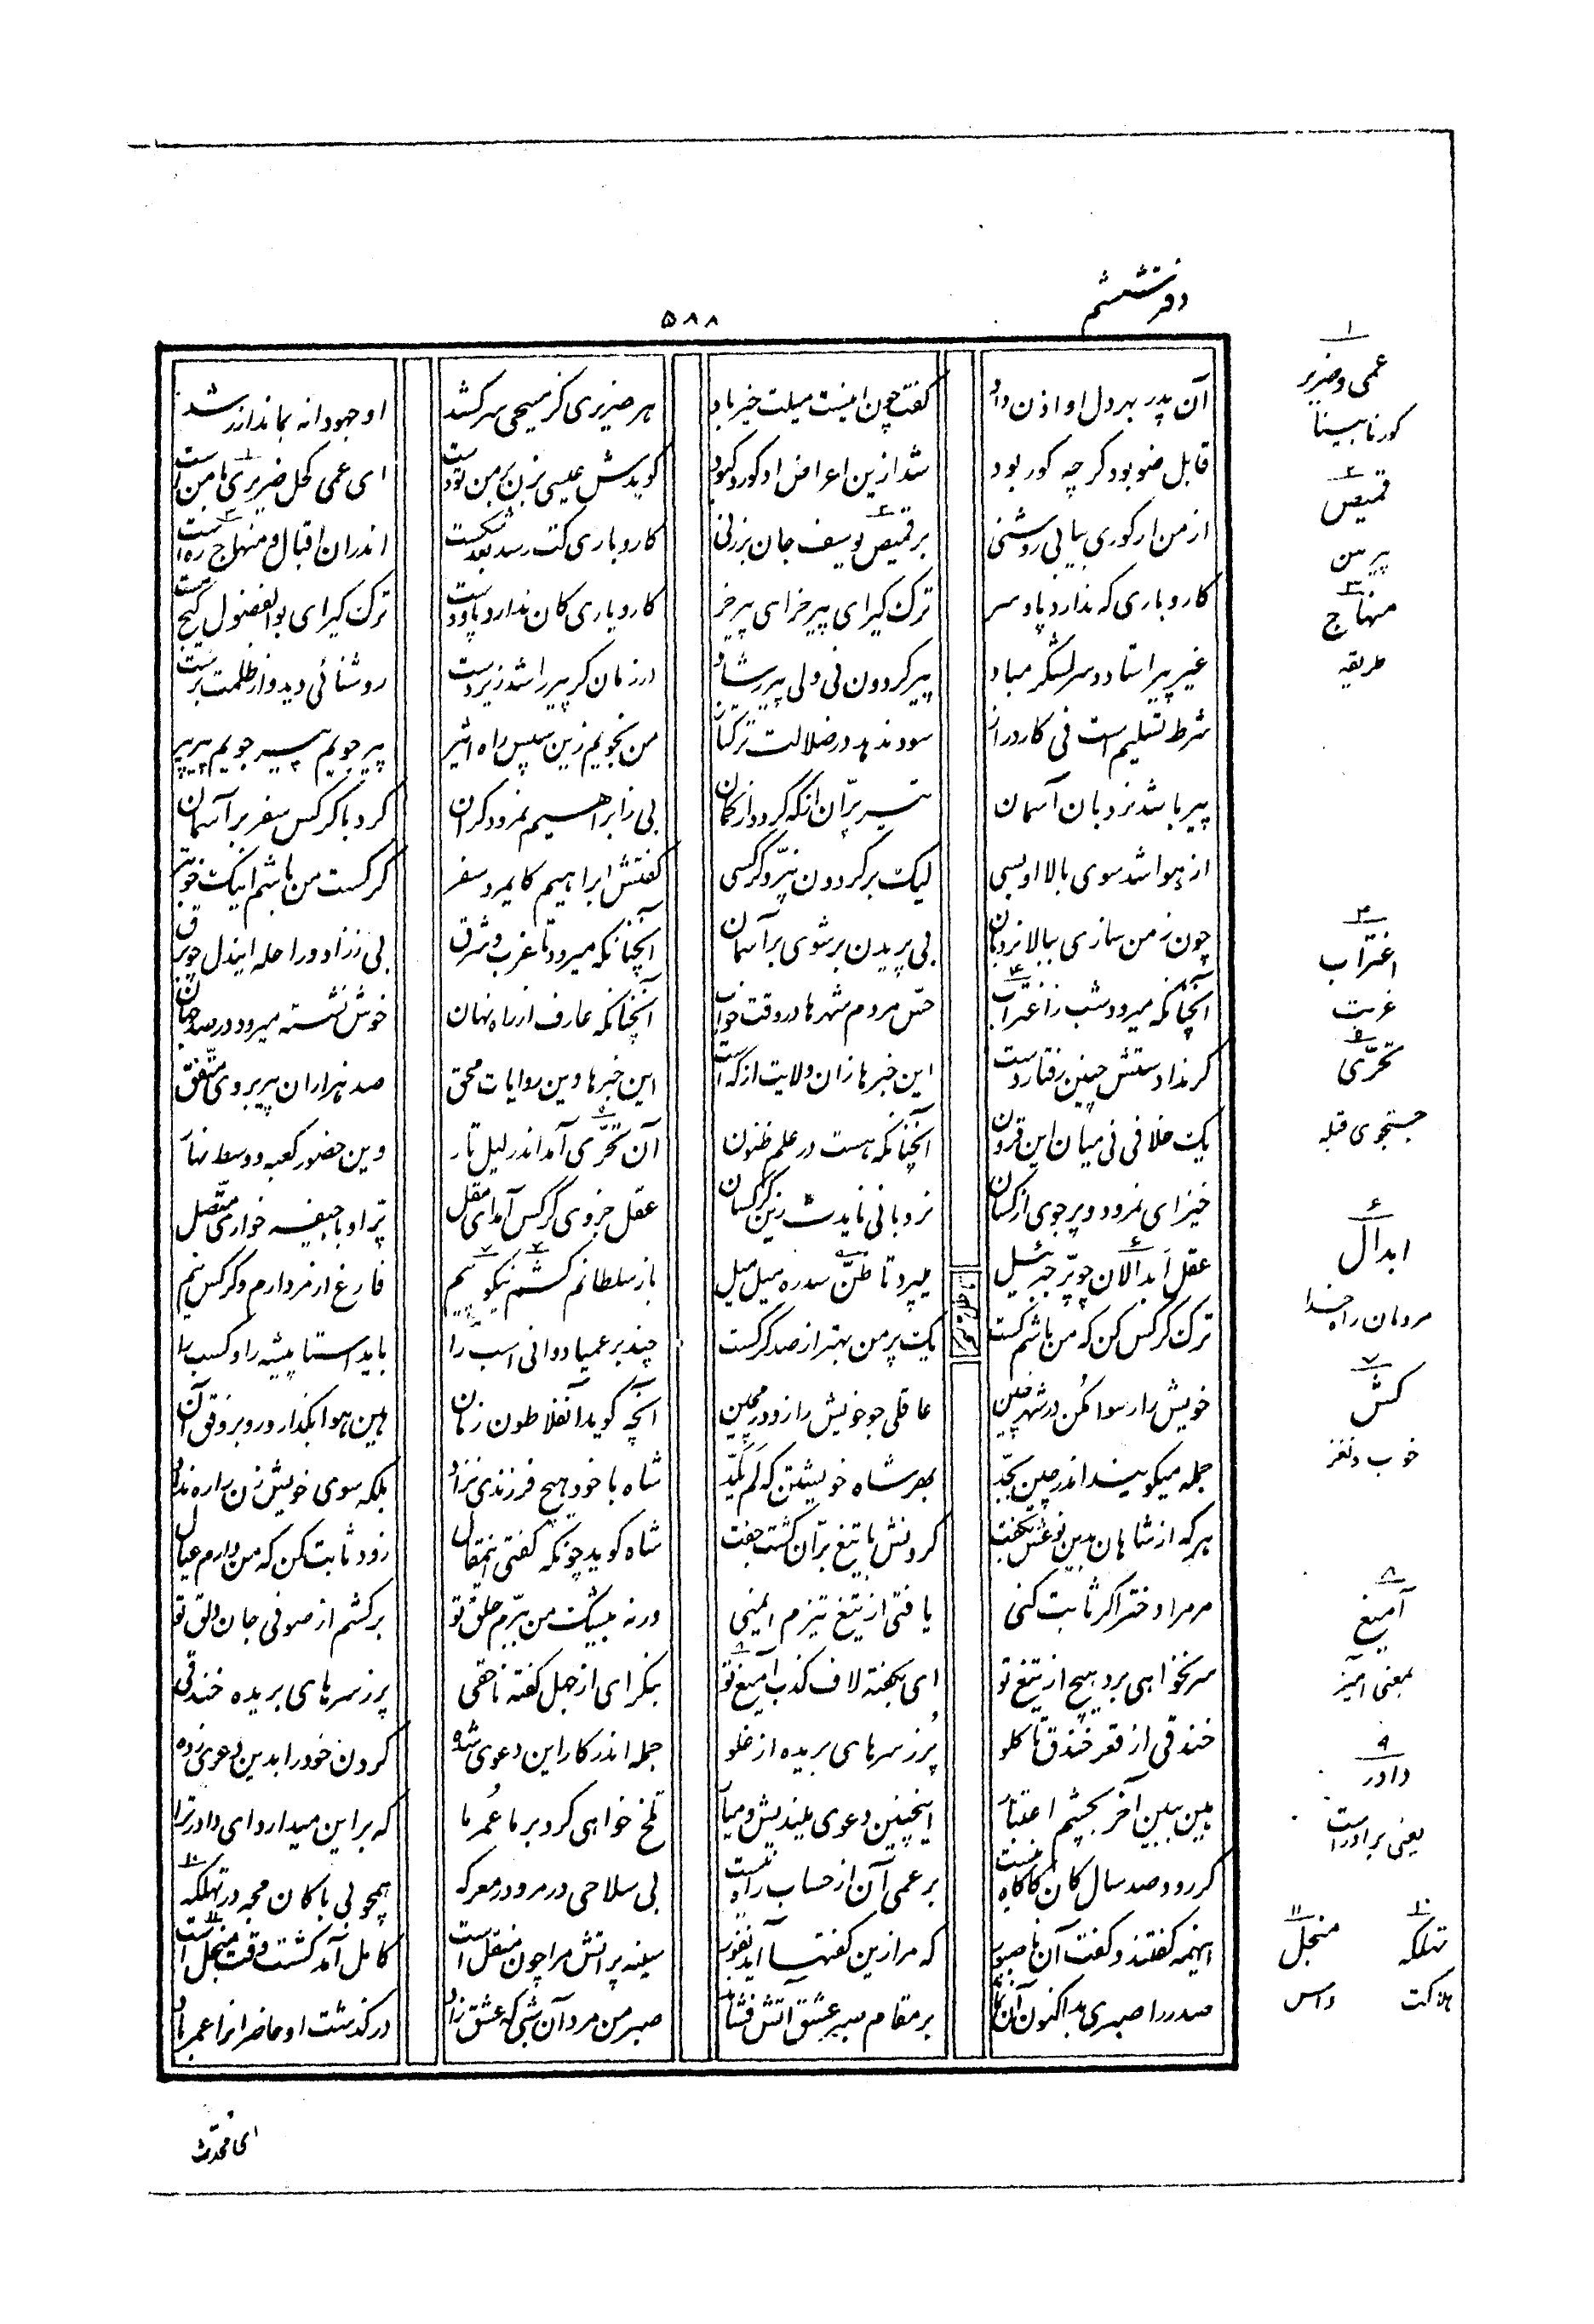 دفتر ششم
۵۸۸
آن پدر بهر دل او اذن داد گفت چون اینست میلت خیر باد هر ضریری کز مسیحی سر کشد او جهودانه بماند از رشد
قابل ضو بود گرچه کور بود شد ازین اعراض او کور و کبود گویدش عیسی بزن بر من تو دست ای عمی کحل ضریری با من است
از من ار کوری بیابی روشنی بر قمیص یوسف جان برزنی کار و باری کت رسد بعد شکست اندران اقبال و منهاج ره است
کار و باری که ندارد پا و سر ترک گیر ای پیر خر ای پیر خر کار و باری کان ندارد پا و دست ترک گیر ای بوالفضول گیج مست
غیر پیر استاد و سر لشگر مباد پیر گردون نی ولی پیر رشاد در زمان گر پیر را شد زیردست روشنائی دید و از ظلمت برست
شرط تسلیم است نی کار دراز سود ندهد در ضلالت ترکتاز من نجویم زین سپس راه اثیر پیر جویم پیر جویم پیر پیر
پیر باشد نردبان آسمان تیر پرّان از که گردد از کمان نی ز ابراهیم نمرود گران کرد با کرکس سفر بر آسمان
از هوا شد سوی بالا او بسی لیک بر گردون نپرّد کرکسی گفتش ابراهیم کای مرد سفر کرکست من باشم اینک خوبتر
چون ز من سازی ببالا نردبان بی پریدن بر شوی بر آسمان آنچنانکه میرود تا غرب و شرق بی ز زاد و راحله ایندل چو برق
آنچنانکه میرود شب ز اغتراب حس مردم شهرها در وقت خواب آنچنانکه عارف از راه نهان خوش نشسته میرود در صد جهان
گر ندادستش چنین رفتار دست این خبرها زان ولایت از که است این خبرها وین روایات محق صد هزاران پیر بر وی متّفق
یک خلافی نی میان این قرون آنچنانکه هست در علم ظنون آن تحرّی آمد اندر لیل تار وین حضور کعبه و وسط نهار
خیز ای نمرود و پر جوی از کسان نردبانی نایدت زین کرکسان عقل جزوی کرکس آمد ای مقل پرّ او با جیفه خواری متّصل
عقل ابدالان چو پرّ جبرئیل میپرد تا ظلّ سدره میل میل باز سلطانم کشم نیکو پیم فارغ از مردارم و کرکس نیم
ترک کرکس کن که من باشم کست یک پر من بهتر از صد کرکست چند بر عمیا دوانی اسب را باید استا پیشه را و کسب را
خویش را رسوا مکن در شهر چین عاقلی جو خویش را زو در مچین آنچه گوید آن فلاطون زمان هین هوا بگذار و رو بر وفق آن
جمله میگویند اندر چین بجدّ بهر شاه خویشتن که لم یلد شاه ما خود هیچ فرزندی نزاد بلکه سوی خویش زن را ره نداد
هر که از شاهان بدین نوعش بگفت گردنش با تیغ برّان گشت جفت شاه گوید چونکه گفتی این مقال زود ثابت کن که من دارم عیال
مر مرا دختر اگر ثابت کنی یافتی از تیغ تیزم ایمنی ورنه بیشک من ببرّم حلق تو برکشم از صوفی جان دلق تو
سر نخواهی برد هیچ از تیغ تو ای بگفته لاف کذب آمیغ تو بنگر ای از جهل گفته ناحقی پر ز سرهای بریده خندقی
خندقی از قعر خندق تا گلو پُر ز سرهای بریده از غلو جمله اندر کار این دعوی شده گردن خود را بدین دعوی زده
هین ببین آخر بچشم اعتبار اینچنین دعوی میندیش و میار تلخ خواهی کرد بر ما عُمر ما که بر این میدارد ای دادر ترا
گر رود صد سال کان کاگاه نیست بر عمی آن از حساب راه نیست بی سلاحی در مرو در معرکه همچو بی باکان مجه در تهلکه
اینهمه گفتند و گفت آن ناصبور که مرا زین گفتها آید نفور سینه پر آتش مرا چون منقل است کامل آمد کشت وقت منجل است
صدر را صبری بد اکنون آن نماند بر مقام صبر عشق آتش فشاند صبر من مرد آن شبی که عشق زاد درگذشت او حاضرانرا عمر باد
۱
عمی و ضریر
کور نابینا
۲
قمیص
پیرهن
۳
منهاج
طریقه
۴
اغتراب
غربت
۵
تحرّی
جستجوی قبله
۶
ابدال
مردمان راه خدا
۷
کش
خوب و نغز
۸
آمیغ
بمعنی آمیز
۹
دادر
یعنی برادر است
۱۰
تهلکه
هلاکت
۱۱
منجل
داس
ای محدث